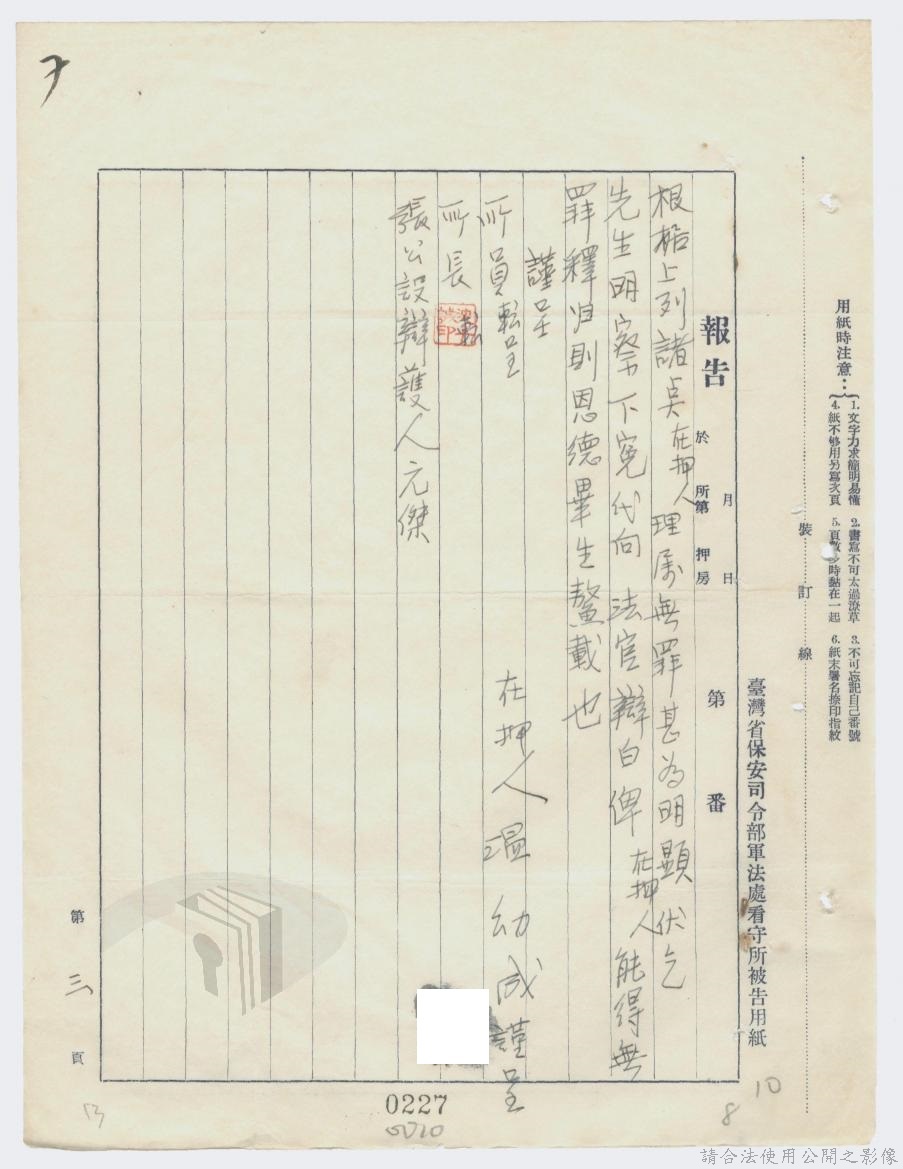 用紙時注意：
1.文字力求簡明易懂 2.書寫不可太過潦草 3.不可忘記自己番號
4.紙不够用另寫次頁 5.頁數 時黏在一起 6.紙末署名捺印指紋
裝訂線
臺灣省保安司令部軍法處看守所被告用紙
報告 於 月 日 所第 押房 第 番
根據上列諸点在押人理属無罪甚為明顯伏乞
先生明察下冤代向 法官辯白俾在押人能得無
罪釋归則恩德畢生鰲載也
謹呈
所員転呈
所長転
張公設辯護人元傑
在押人溫幼成謹呈
第三頁
0227
10
8
請合法使用公開之影像